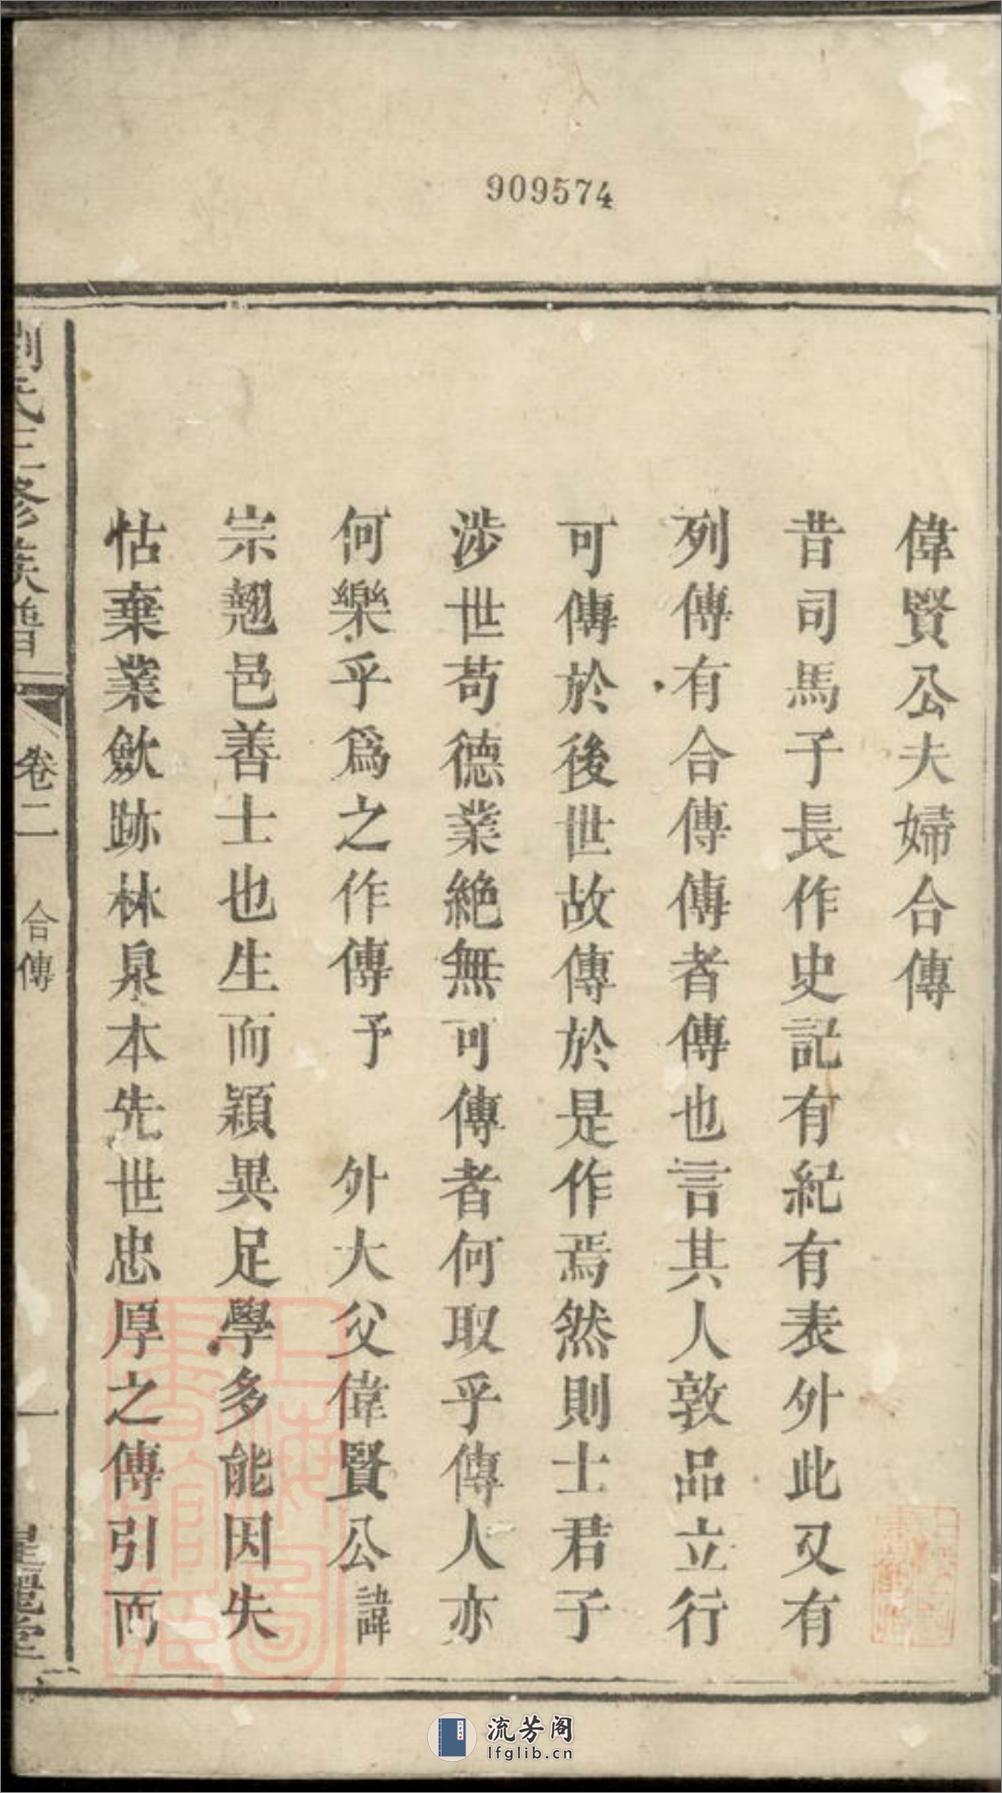 909574
偉賢公夫婦合傳
昔司馬子長作史記有紀有表外此又有
列傳有合傳傳者傳也言其人敦品立行
可傳於後世故傳於是作焉然則士君子
涉世苟德業絶無可傳者何取乎傳人亦
何樂乎爲之作傳予 外大父偉賢公諱
宗翹邑善士也生而穎異足學多能因失
怙棄業斂跡林泉本先世忠厚之傳引而
劉氏三修族譜 卷二 合傳 一
流芳阁
lfglib.cn